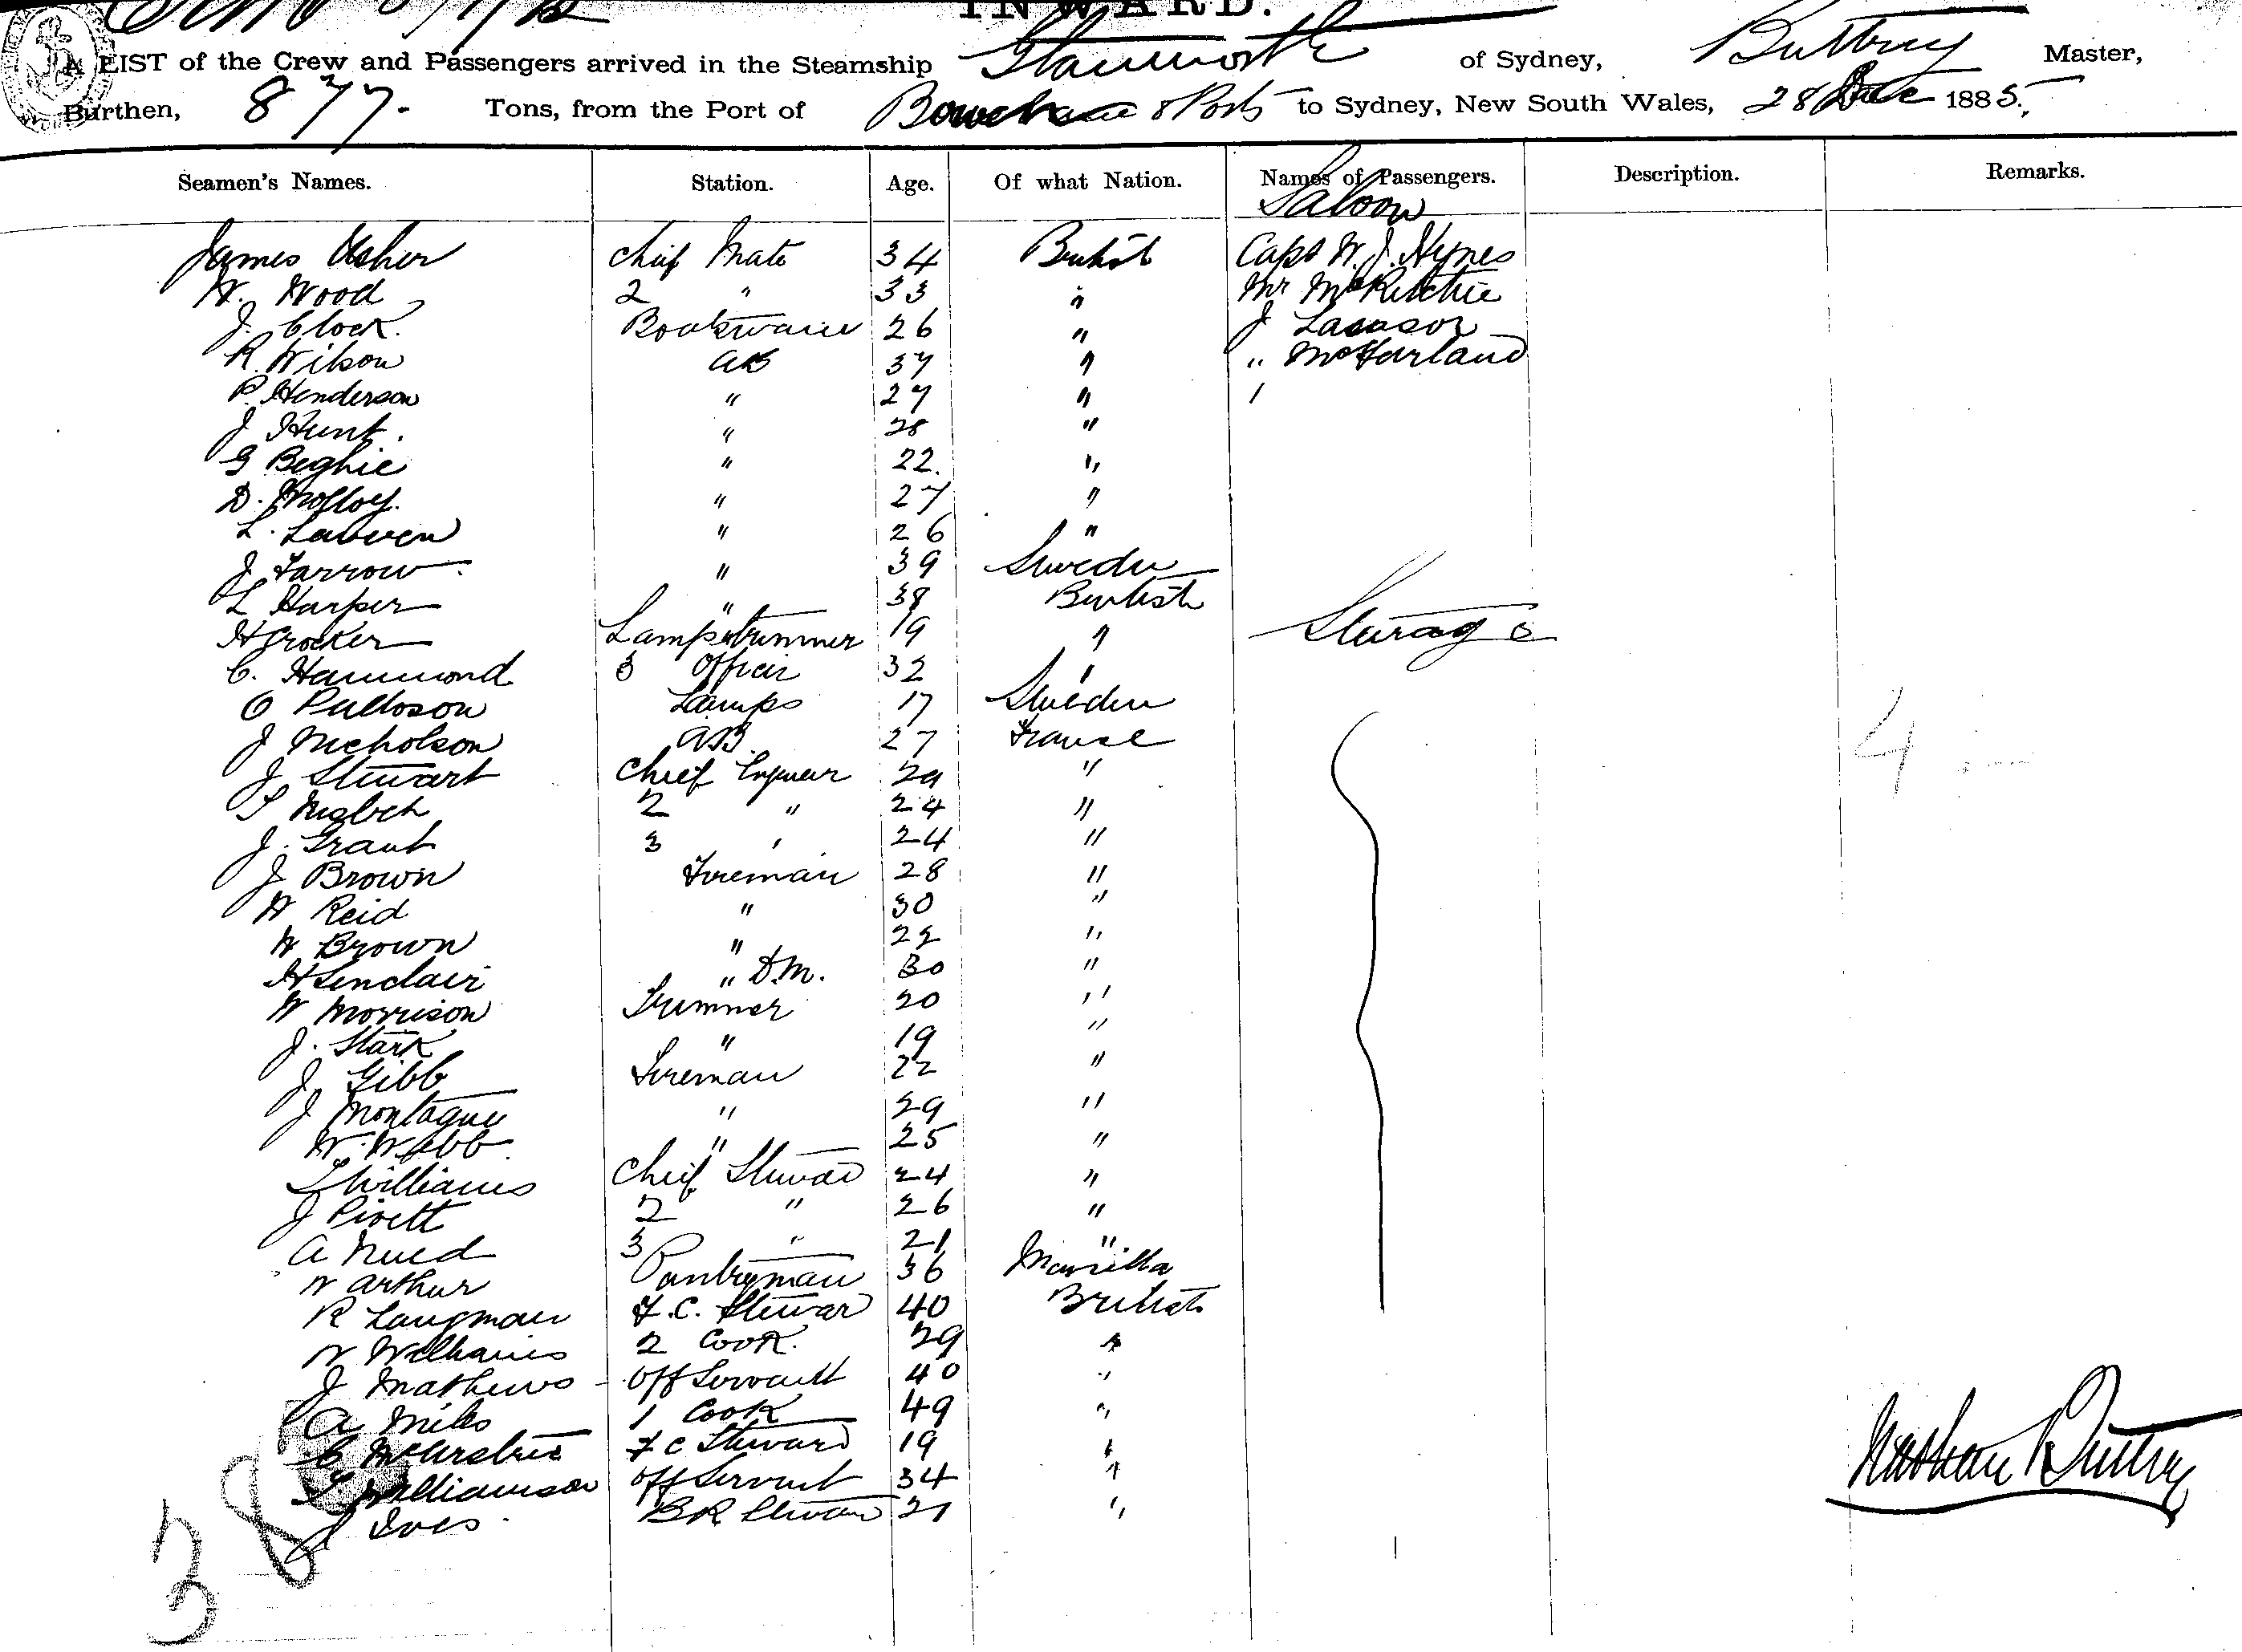 INWARD.
A LIST of the Crew and Passengers arrived in the Steamship Stanworth of Sydney, Buttrey Master,
Burthen, 877. Tons, from the Port of & Ports to Sydney, New South Wales, 28 Dec 1885.
Seamen's Names. Station. Age. Of what Nation. Names of Passengers. Description. Remarks.
Saloon
James Usher Chief Mate 34 British Capt W. J. Hynes
W. Wood 2 " 33 " Mr McRitchie
J. Clock. Boatswain 26 " J
R. Wilson AB 37 " " McFarland
P. Henderson " 27 "
J Hunt. " 28 "
G Beghie " 22. "
D. Molloy. " 27 "
L. " 26 "
J. Farrow " 39 Sweden
L Harper " 38 British
H Crocker Lamptrimmer 19 " Steerage
C. Hammond 3 Officer 32 "
O Lamps 17 Sweden
J Nicholson AB 27 France
J Stewart Chief Engineer 29 "
2 " 24 "
J. Grant 3 " 24 "
J Brown Fireman 28 "
W Reid " 30 "
W Brown " 22 "
H Sinclair " D.M. 30 "
W Morrison Trimmer 20 "
J. Stark " 19 "
J. Gibb Fireman 22 "
J Montague " 29 "
W. Webb " 25 "
T Williams Chief Steward 24 "
J Pivett 2 " 26 "
A 3 " 21 "
W Arthur Pantryman 36 Manilla
R Langman F.C. Stewar 40 British
W Williams 2 Cook. 29 "
J Mathews Off Servant 40 "
A Miles 1 Cook 49 "
C F C Steward 19 "
T Williamson Off Servant 34 "
J Ives B R Steward 21 "
4
38
Nathan Buttrey